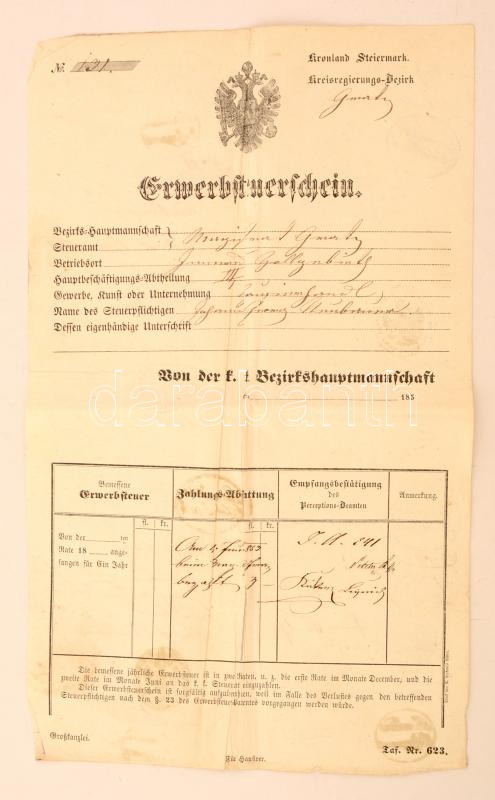 №. 131.
Kronland Steiermark.
Kreisregierungs-Bezirk
Gratz
Erwerbsteuerschein.
Bezirks-Hauptmannschaft
Steueramt
Magistrat Gratz
Betriebsort
Hauptbeschäftigungs-Abtheilung III
Gewerbe, Kunst oder Unternehmung
Name des Steuerpflichtigen Johann
Dessen eigenhändige Unterschrift
Von der k. k. Bezirkshauptmannschaft
185
Bemessene
Erwerbsteuer
Zahlungs-Abstattung
Empfangsbestätigung
des
Perceptions-Beamten
Anmerkung.
fl. kr. fl. kr.
Von der ten
Rate 18 ange-
fangen für Ein Jahr
Am 2. Juni 853
J. A. 841
bezahlt 3 —
Die bemessene jährliche Erwerbsteuer ist in zwei Raten, u. z. die erste Rate im Monate December, und die
zweite Rate im Monate Juni an das k. k. Steueramt einzuzahlen.
Dieser Erwerbsteuerschein ist sorgfältig aufzubewahren, weil im Falle des Verlustes gegen den betreffenden
Steuerpflichtigen nach dem §. 23 des Erwerbsteuer-Patentes vorgegangen werden würde.
Großkanzlei.
Für Hausirer.
Taf. Nr. 623.
darabanth